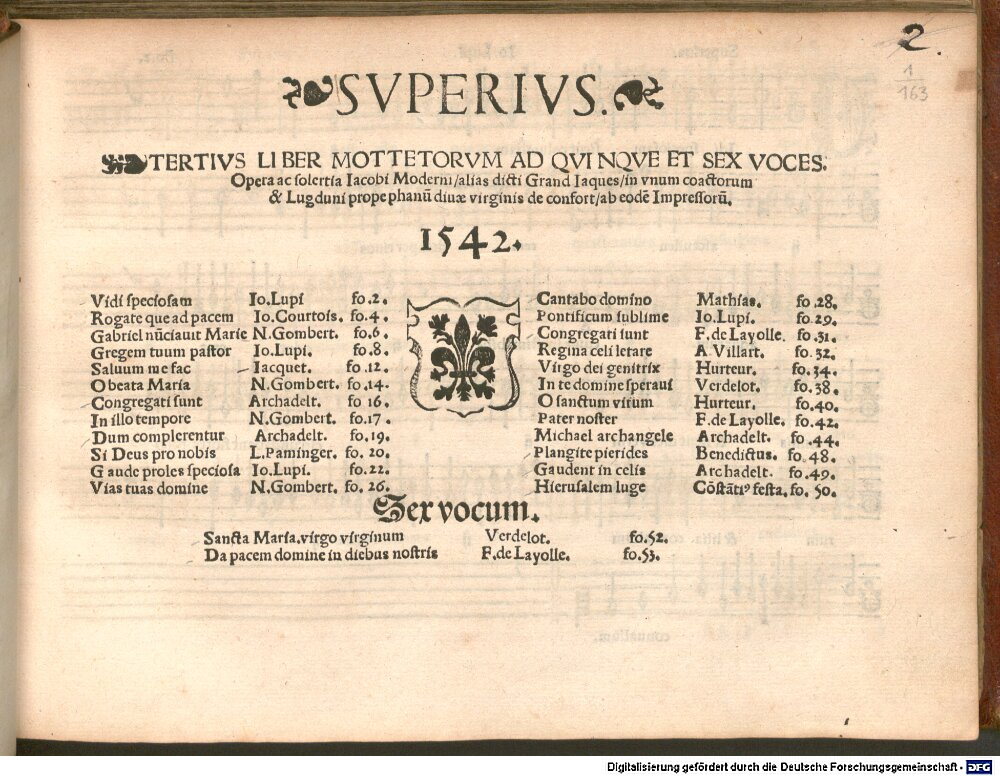 2.
1
163
SVPERIVS.
TERTIVS LIBER MOTTETORVM AD QVINQVE ET SEX VOCES.
Opera ac solertia Iacobi Moderni/alias dicti Grand Iaques/in vnum coactorum
& Lugduni prope phanū diuæ virginis de confort/ab eodē Impressorū.
1542.
Vidi speciosam Io.Lupi fo.2.
Rogate que ad pacem Io.Courtois. fo.4.
Gabriel nūciauit Marie N.Gombert. fo.6.
Gregem tuum pastor Io.Lupi. fo.8.
Saluum me fac Iacquet. fo.12.
O beata Maria N.Gombert. fo.14.
Congregati sunt Archadelt. fo 16.
In illo tempore N.Gombert. fo.17.
Dum complerentur Archadelt. fo.19.
Si Deus pro nobis L.Paminger. fo. 20.
Gaude proles speciosa Io.Lupi. fo.22.
Vias tuas domine N.Gombert. fo. 26.
Cantabo domino Mathias. fo.28.
Pontificum sublime Io.Lupi. fo.29.
Congregati sunt F.de Layolle. fo.31.
Regina celi letare A.Villart. fo.32.
Virgo dei genitrix Hurteur. fo.34.
In te domine speraui Verdelot. fo.38.
O sanctum virum Hurteur. fo.40.
Pater noster F.de Layolle. fo.42.
Michael archangele Archadelt. fo.44.
Plangite pierides Benedictus. fo.48.
Gaudent in celis Archadelt. fo.49.
Hierusalem luge Cōstātiꝰ festa. fo. 50.
Sex vocum.
Sancta Maria.virgo virginum Verdelot. fo.52.
Da pacem domine in diebus nostris F.de Layolle. fo.53.
Digitalisierung gefördert durch die Deutsche Forschungsgemeinschaft - DFG